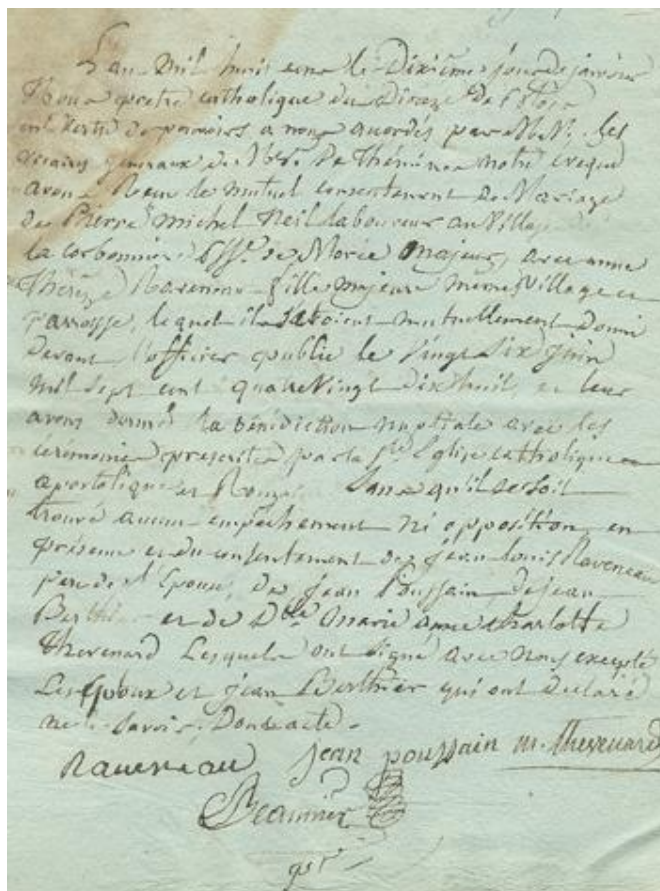 L'an mil huit cent le Dixième jour de janvier
Nous pretre catholique du Dioceze de Blois
en vertu de pouvoirs a nous acordés par M.M. les
vicaires generaux de Mgr. De Thémines notre eveque
avons Recu le mutuel consentement de Mariage
de Pierre michel Neil laboureur au Village de
la corbonnier psse. de Morée majeur, avec anne
Thérèze Raveneau fille majeure meme Village et
paroisse, lequel ils s'etoient mutuellement donné
devant l'officier public le Vingt Six juin
mil sept cent quatre Vingt dix huit, et leur
avons donné la bénédiction nuptiale avec les
cérémonies prescrites par la Ste Eglise catholique
apostolique et Romaine Sans qu'il se soit
trouvé aucun empechement ni opposition, en
présence et du consentement de jean louis Raveneau
pere de l'Epouse, de jean Poussain, de jean
Berthier et de Dlle marie anne charlotte
Thevenard Lesquels ont signé avec nous excepté
Les Epoux et jean Berthier qui ont declaré
ne le Savoir. Dont acte.
Raveneau jean poussain m. thevenard
Beaunier
ptre